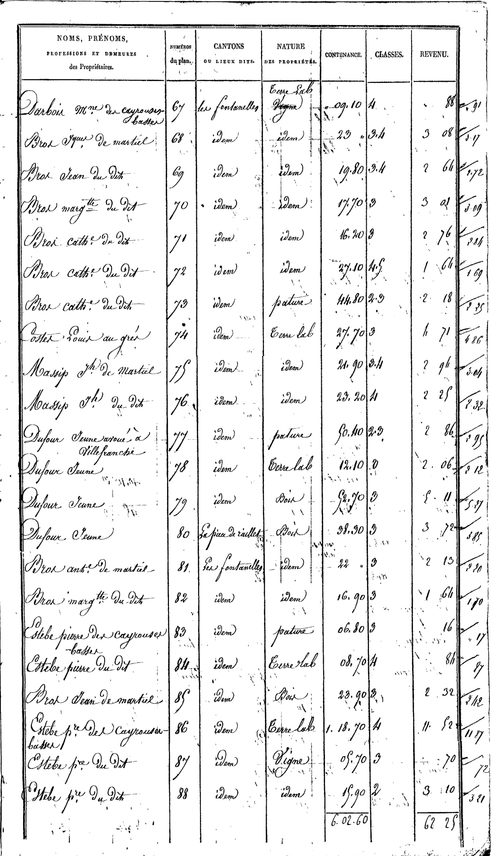 NOMS, PRÉNOMS, PROFESSIONS ET DEMEURES des Propriétaires. NUMÉROS du plan. CANTONS OU LIEUX DITS. NATURE DES PROPRIÉTÉS. CONTENANCE. CLASSES. REVENU.
Terre lab
Darbois des Cayrouses 67 les fontanelles Vigne 09.10 4 88
basses
Bros de martiel 68 idem idem 23 3.4 3 08
Bros Jean du dit 69 idem idem 19.80 3.4 2 64
Bros margte du dit 70 idem idem 17.70 3 3 01
Bros cathe du dit 71 idem idem 16.20 3 2 76
Bros cathe du dit 72 idem idem 27.10 4.5 1 64
Bros cathe du dit 73 idem pature 44.80 2.3 2 18
Louis au grès 74 idem Terre lab 27.70 3 4 71
Massip Jh de martiel 75 idem idem 21.90 3.4 2 96
Massip Jh du dit 76 idem idem 23.20 4 2 25
Dufour Jeune avoué à 77 idem pature 50.40 2.3 2 86
Villefranche
Dufour Jeune 78 idem Terre lab 12.10 3 2 06
Dufour Jeune 79 idem Bois 52.70 3 5 11
Dufour Jeune 80 Bois 38.30 3 3 72
Bros de martiel 81 Les fontanelles idem 22 3 2 13
Bros margte du dit 82 idem idem 16.90 3 1 64
Estèbe pierre des Cayrouses 83 idem pature 06.80 3 16
basses
Estèbe pierre du dit 84 idem Terre lab 08.70 4 84
Bros Jean de martiel 85 idem Bois 23.90 3 2 32
Estèbe pre des Cayrouses 86 idem Terre lab 1.18.70 4 11 52
basses
Estèbe pre du dit 87 idem Vigne 05.70 3 70
Estèbe pre du dit 88 idem idem 15.90 2 3 10
6.02.60 62 25